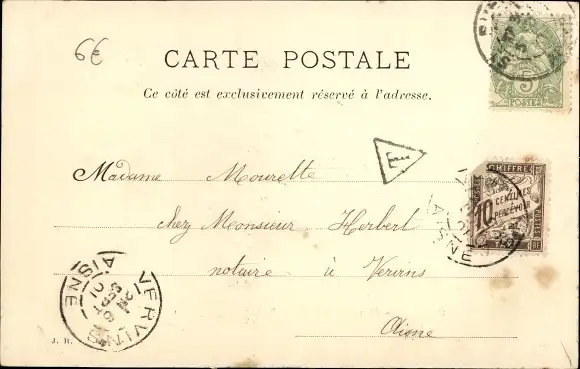 6€
CARTE POSTALE
Ce côté est exclusivement réservé à l'adresse.
5
POSTES
T
CHIFFRE
10
CENTIMES
A PERCEVOIR
Madame Mourette
chez Monsieur Herbert
notaire à Vervins
Aisne
VERVINS
AISNE
AISNE
J. B.